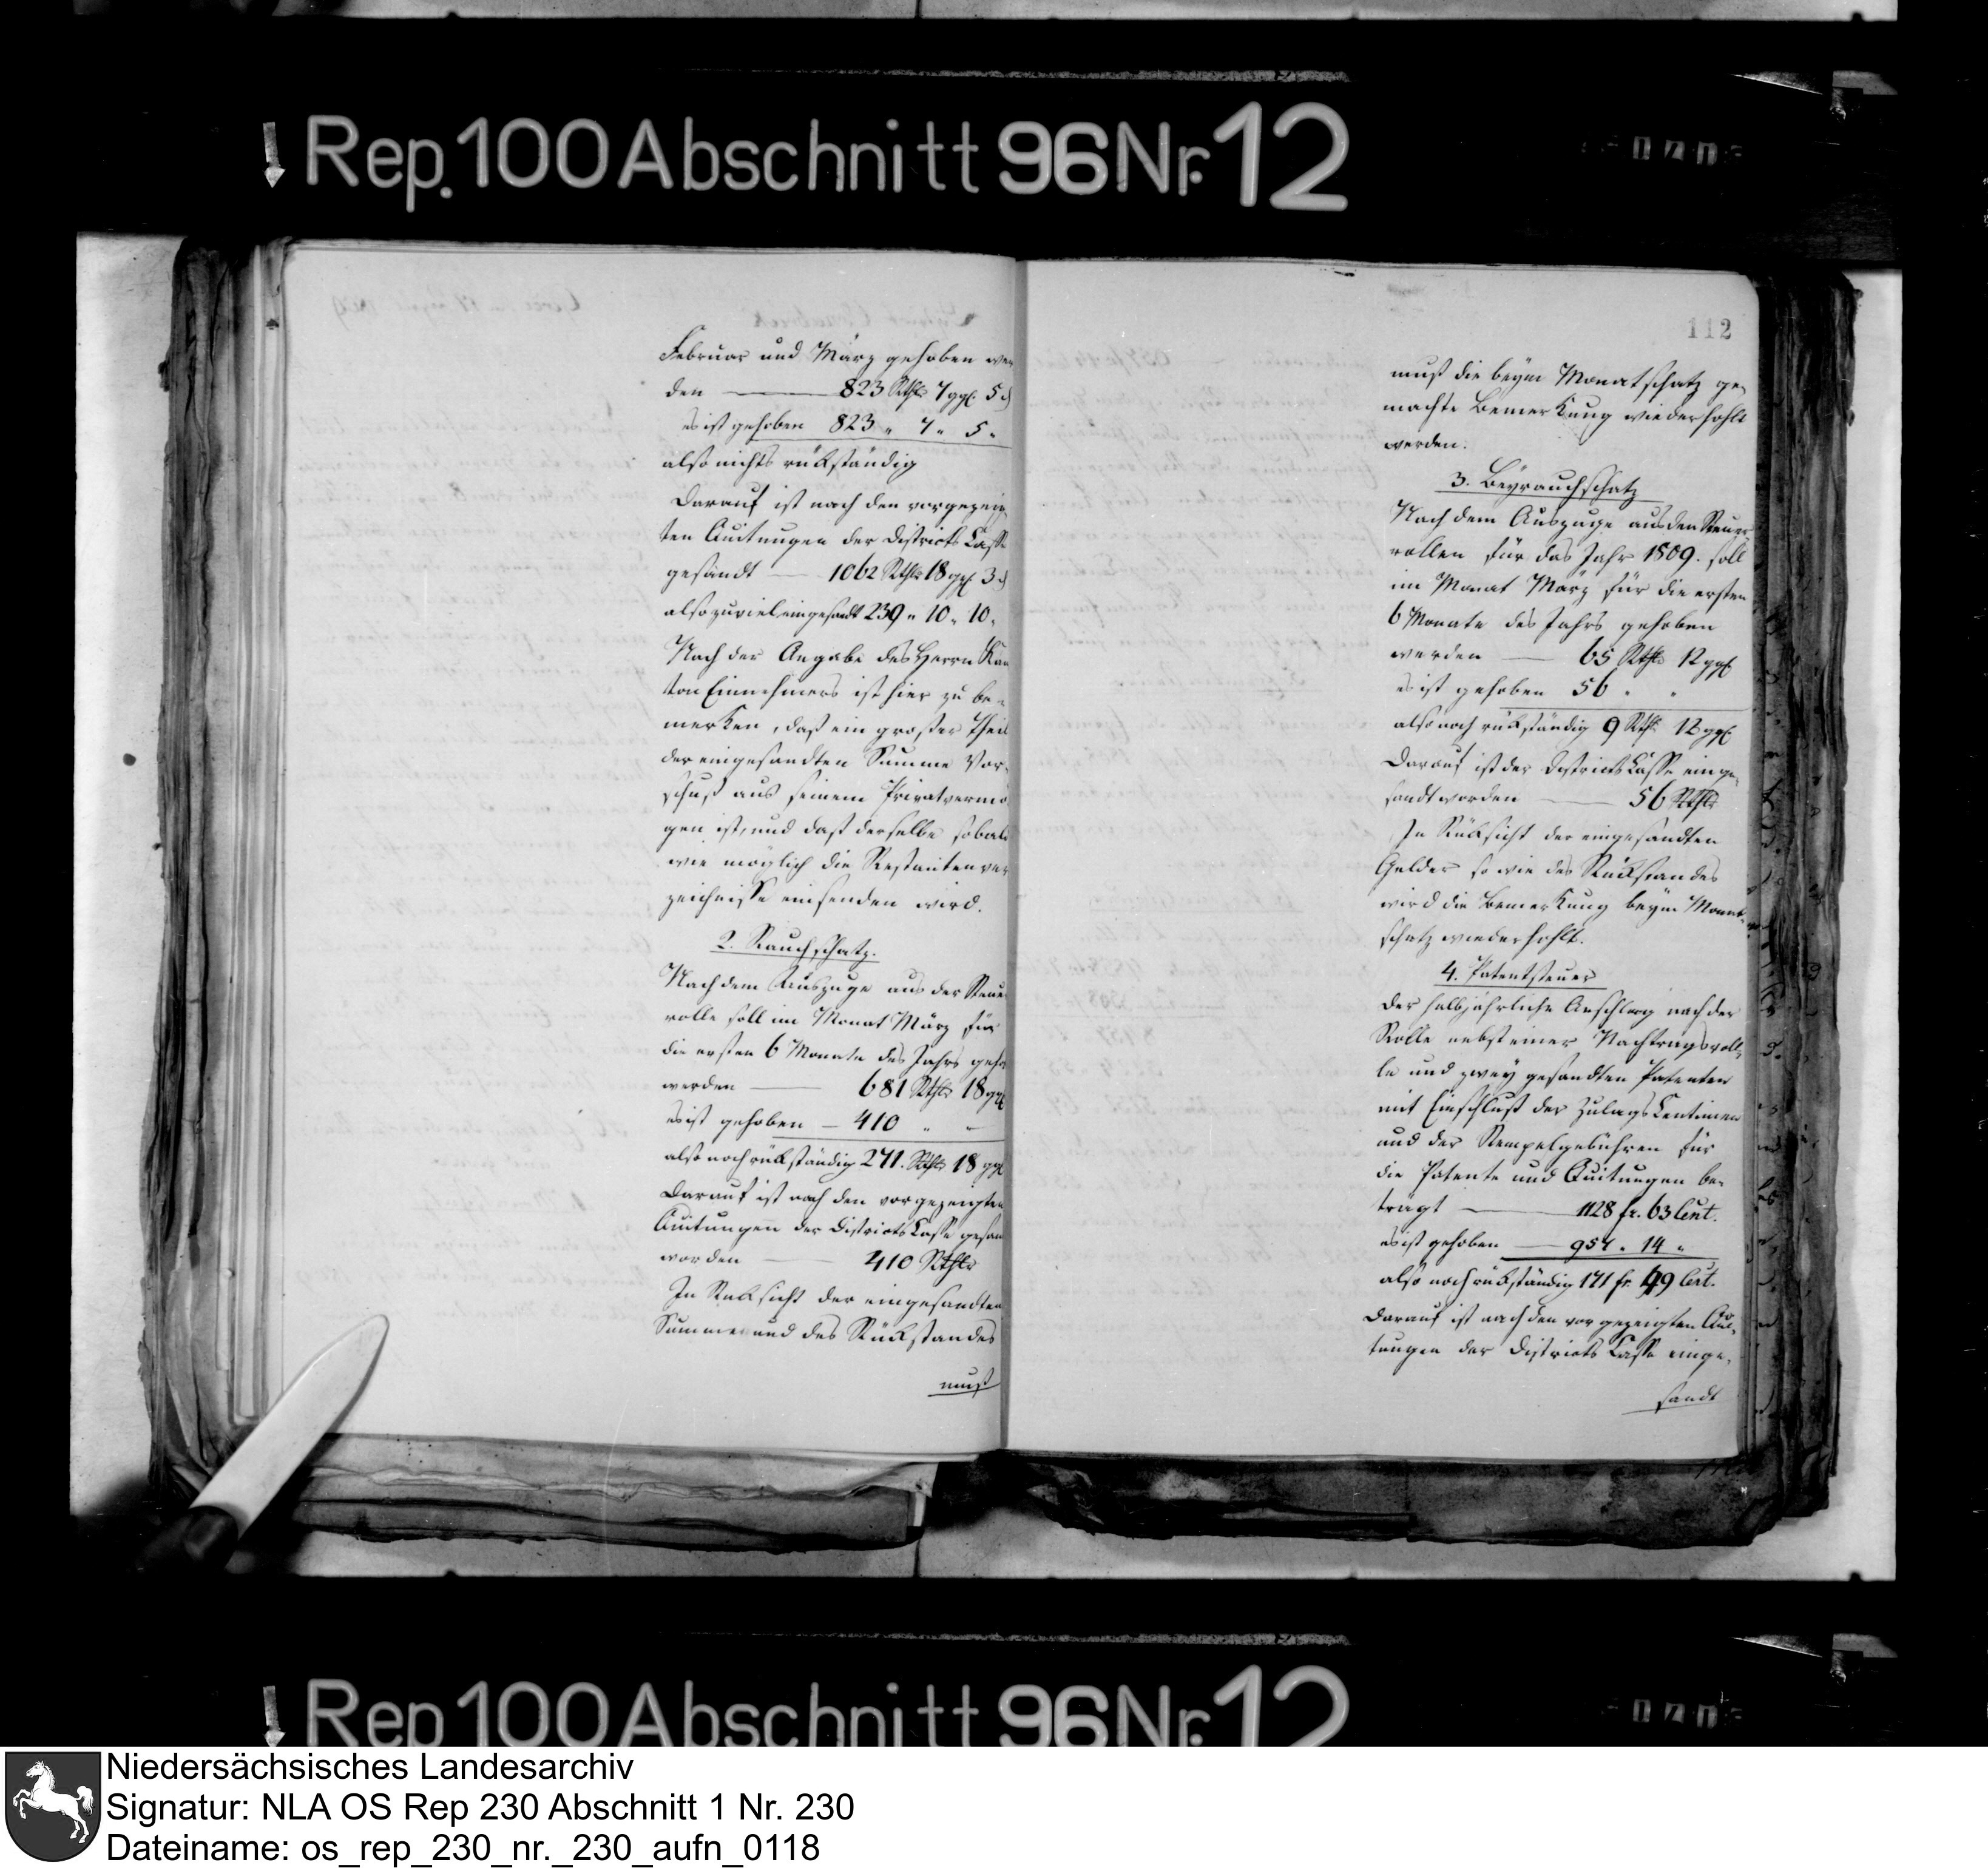 Rep. 100 Abschnitt 96 Nr. 12
Februar und März gehoben wer
den — 823 Rthlr 7 ggl. 5 d
es ist gehoben 823 „ 7 „ 5 „
also nichts rükständig
Darauf ist nach den vorgezeig
ten Quitungen der Districts Casse
gesandt — 1062 Rthlr 18 ggl. 3 d
also zuviel eingesandt 239 „ 10 „ 10 „
Nach der Angabe des Herrn Kan
ton Einnehmers ist hier zu be-
merken, daß ein großer Theil
der eingesandten Summe Vor-
schuß aus seinem Privatvermö
gen ist, und daß derselbe sobald
wie möglich die Restanten ver
zeichnisse einsenden wird.
2. Rauchschatz.
Nach dem Auszuge aus der Steuer
rolle soll im Monat März für
die ersten 6 Monate des Jahrs geho
werden — 681 Rthlr 18 ggl
es ist gehoben — 410 „ –
also noch rükständig 271. Rthlr 18 ggl
Darauf ist nach den vorgezeigten
Quitungen der Districts Casse gesan
worden — 410 Rthlr
In Rüksicht der eingesandten
Summe und des Rükstandes
muß
112
muß die beym Monatschatz ge-
machte Bemerkung wiederhohlt
werden.
3. Beyrauchschatz
Nach dem Auszuge aus den Steuer-
rollen für das Jahr 1809. soll
im Monat März für die ersten
6 Monate des Jahrs gehoben
werden — 65 Rthlr 12 ggl
es ist gehoben 56 „ „
also noch rükständig 9 Rthlr 12 ggl
Darauf ist der Districts Casse einge-
sandt worden — 56 Rthlr
In Rüksicht der eingesandten
Gelder so wie des Rükstandes
wird die Bemerkung beym Monat-
schatz wiederhohlt.
4. Patentsteuer
Der halbjährliche Anschlag nach der
Rolle nebst einer Nachtragsroll-
le und zwey gesandten Patenten
mit Einschluß der Zulags Centimen
und der Stempelgebühren für
die Patente und Quitungen be-
trägt — 1128 fr. 63 Cent.
es ist gehoben — 957 „ 14 „
also noch rükständig 171 fr. 49 Cent.
Darauf ist nach den vorgezeigten Qui-
tungen der Districts Casse einge-
sandt
Rep. 100 Abschnitt 96 Nr. 12
Niedersächsisches Landesarchiv
Signatur: NLA OS Rep 230 Abschnitt 1 Nr. 230
Dateiname: os_rep_230_nr._230_aufn_0118